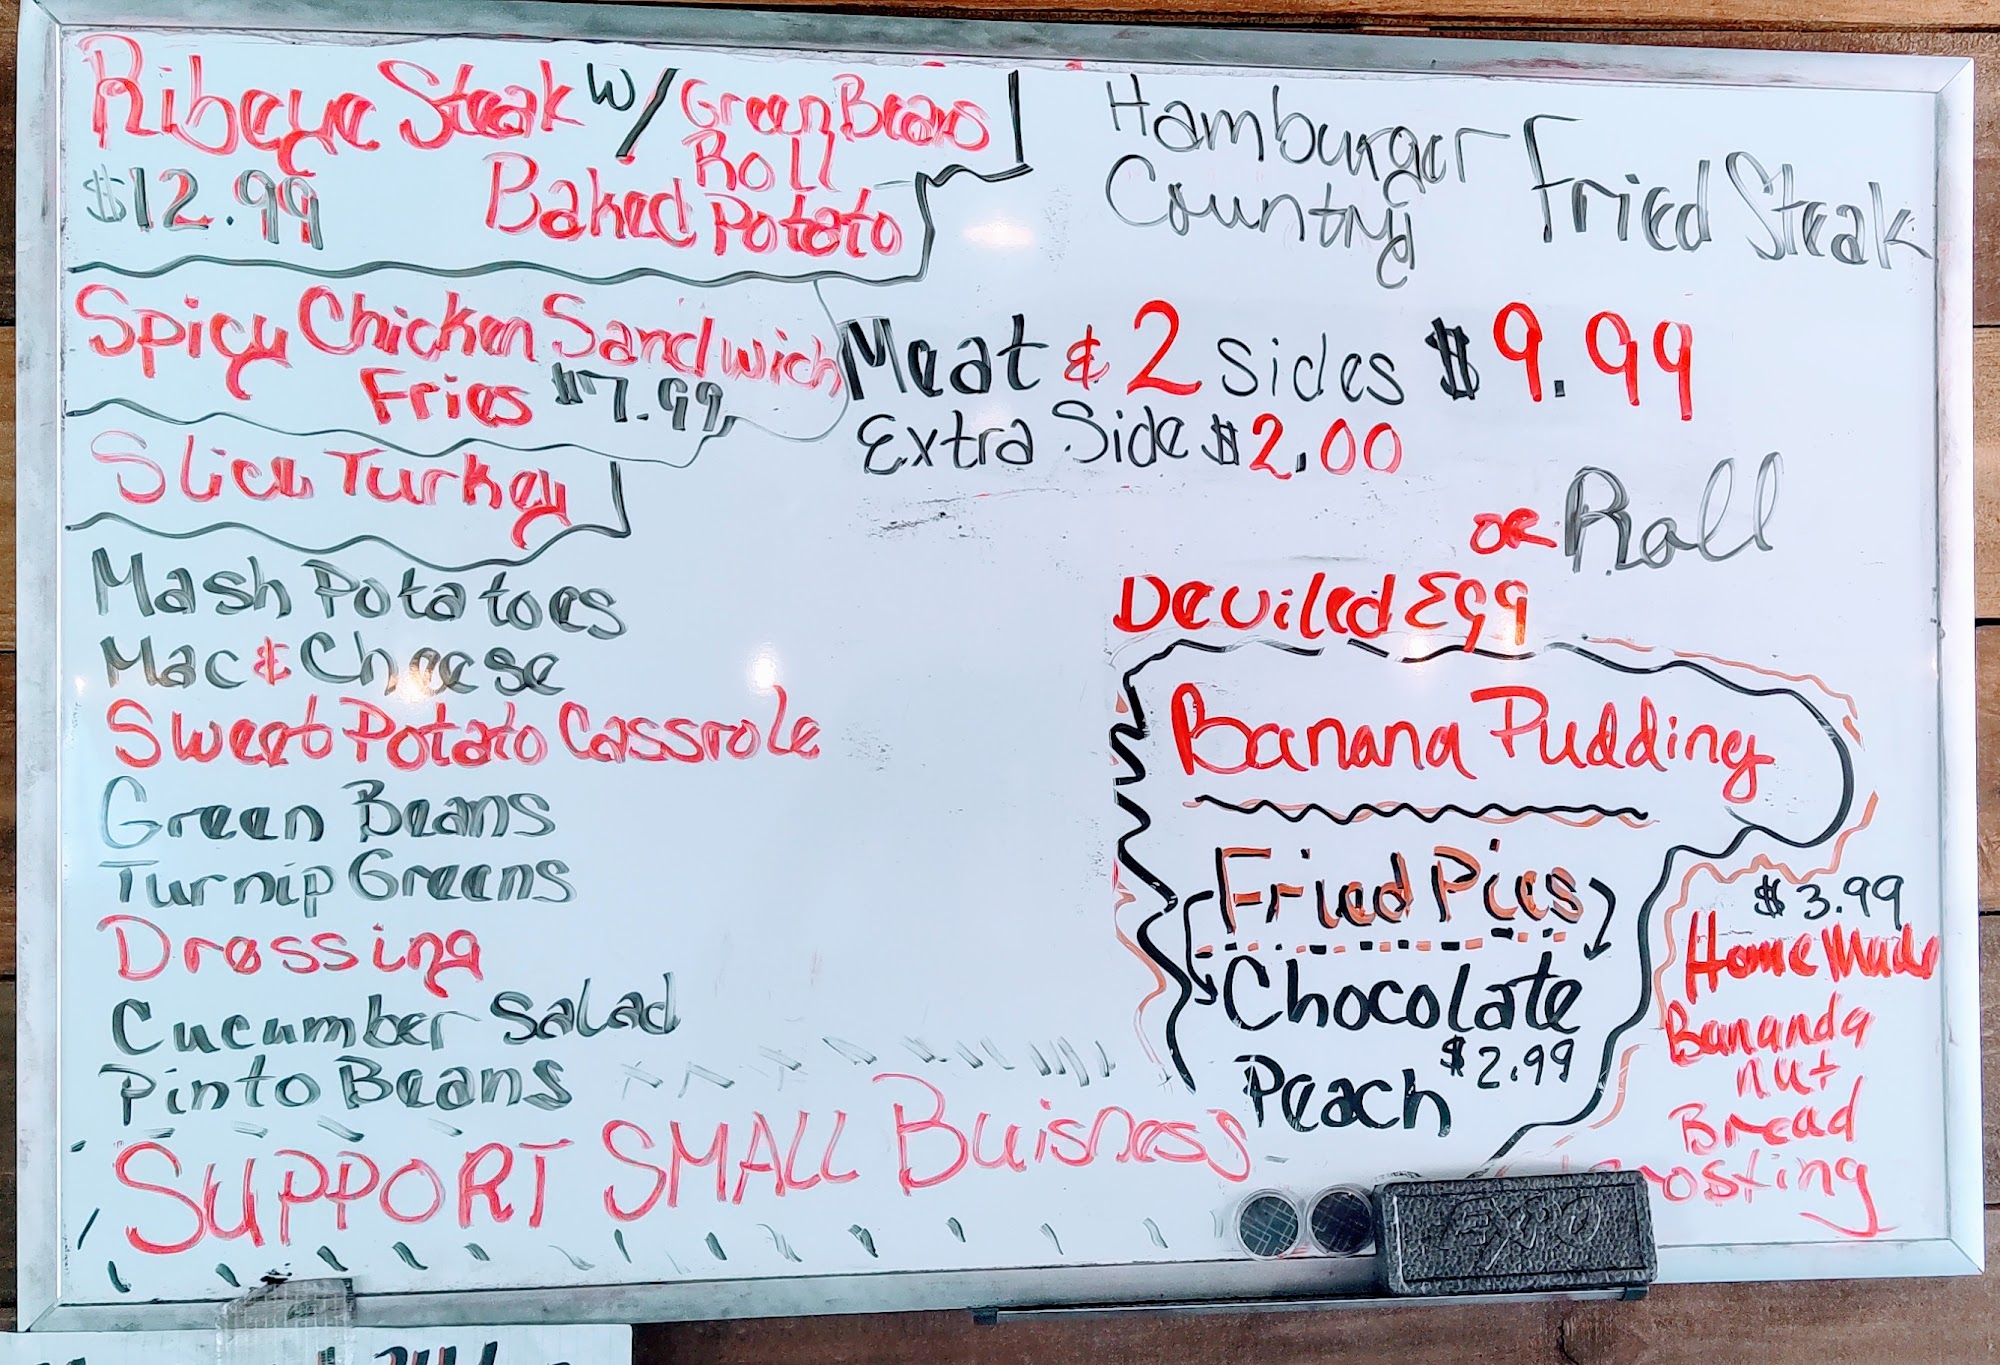 Ribeye Steak w/ Green Beans
Roll
$12.99 Baked Potato
Spicy Chicken Sandwich
Fries $7.99
Slice Turkey
Mash Potatoes
Mac & Cheese
Sweet Potato Cassrole
Green Beans
Turnip Greens
Dressing
Cucumber Salad
Pinto Beans
SUPPORT SMALL Buisness
Hamburger
Country Fried Steak
Meat & 2 Sides $9.99
Extra Side $2.00
or Roll
Deviled Egg
Banana Pudding
Fried Pies
Chocolate
$2.99
Peach
$3.99
Home Made
Bananda
nut
Bread
EXPO